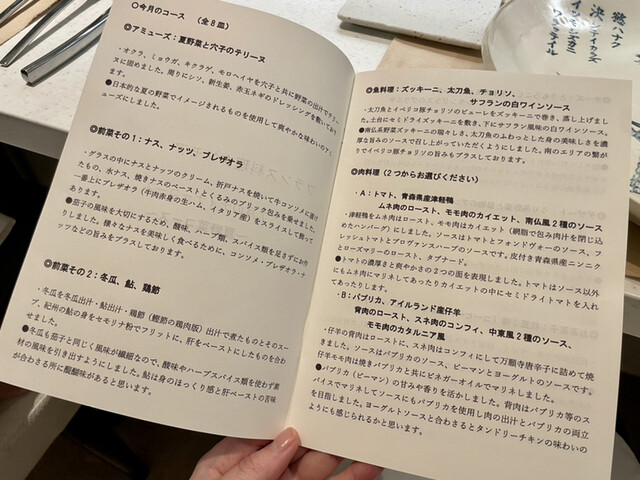 ◇今月のコース　（全８皿）
◎アミューズ：夏野菜と穴子のテリーヌ
・オクラ、ミョウガ、キクラゲ、モロヘイヤを穴子と共に野菜の出汁でテリーヌに固めました。周りにシソ、新生姜、赤玉ネギのドレッシングを敷いております。
●日本的な夏の野菜でイメージされるものを使用して爽やかな味わいのアミューズにしました。
◎前菜その１：ナス、ナッツ、ブレザオラ
・グラスの中にナスとナッツのクリーム、折戸ナスを焼いて牛コンソメに漬けたもの、水ナス、焼きナスのペーストとくるみのブリック包みを乗せました。一番上にブレザオラ（牛肉赤身の生ハム、イタリア産）をスライスして飾っております。
●茄子の風味を大切にするため、酸味、ハーブ類、スパイス類を足さずにおりしました。様々なナスを美味しく食べるために、コンソメ・ブレザオラ・ナッツなどの旨みをプラスしております。
◎前菜その２：冬瓜、鮎、鶏節
・冬瓜を冬瓜出汁・鮎出汁・鶏節（鰹節の鶏肉版）出汁で煮たものとそのスープ、紀州の鮎の身をセモリナ粉でフリットに、肝をペーストにしたものを合わせました。
●冬瓜も茄子と同じく風味が繊細なので、酸味やハーブスパイス類を使わず素材の風味を引き出すようにしました。鮎は身のほっくり感と肝ペーストの苦味が合わさる所に醍醐味があると思います。
◎魚料理：ズッキーニ、太刀魚、チョリソ、
サフランの白ワインソース
・太刀魚とイベリコ豚チョリソのピューレをズッキーニで巻き、蒸し上げました。土台にセミドライズッキーニを敷き、下にサフラン風味の白ワインソース。
●南仏系野菜ズッキーニの瑞々しさ、太刀魚のふわっとした身の美味しさを濃厚な旨みのソースで召し上がっていただくようにしました。南のエリアの繋がりでイベリコ豚チョリソの旨みもプラスしております。
◎肉料理（２つからお選びください）
・Ａ：トマト、青森県産津軽鴨
ムネ肉のロースト、モモ肉のカイエット、南仏風２種のソース
・津軽鴨をムネ肉はロースト、モモ肉はカイエット（網脂で包み肉汁を閉じ込めたハンバーグ）にしました。ソースはトマトとフォンドヴォーのソース、フレッシュトマトとプロヴァンスハーブのソースです。皮付き青森県産ニンニクとローズマリーのロースト、タプナード。
●トマトの濃厚さと爽やかさの２つの面を表現しました。トマトはソース以外にもムネ肉にマリネしてあったりカイエットの中にセミドライトマトを入れてあったりします。
・Ｂ：パプリカ、アイルランド産仔羊
背肉のロースト、スネ肉のコンフィ、中東風２種のソース、
モモ肉のカタルニア風
・仔羊の背肉はローストに、スネ肉はコンフィにして万願寺唐辛子に詰めて焼きました。ソースはパプリカのソース、ピーマンとヨーグルトのソースです。仔羊モモ肉は焼きパプリカと共にビネガーオイルでマリネしました。
●パプリカ（ピーマン）の甘みや香りを活かしました。背肉はパプリカ等のスパイスでマリネしてソースにもパプリカを使用し肉の出汁とパプリカの両立を目指しました。ヨーグルトソースと合わさるとタンドリーチキンの味わいのようにも感じられるかと思います。